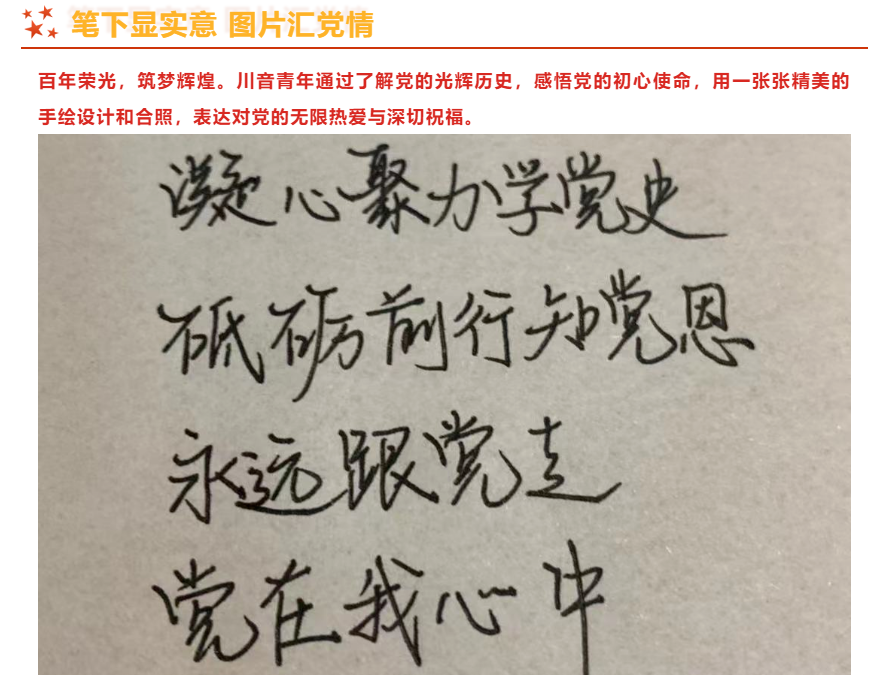 笔下显实意 图片汇党情
百年荣光，筑梦辉煌。川音青年通过了解党的光辉历史，感悟党的初心使命，用一张张精美的
手绘设计和合照，表达对党的无限热爱与深切祝福。
凝心聚力学党史
砥砺前行知党恩
永远跟党走
党在我心中